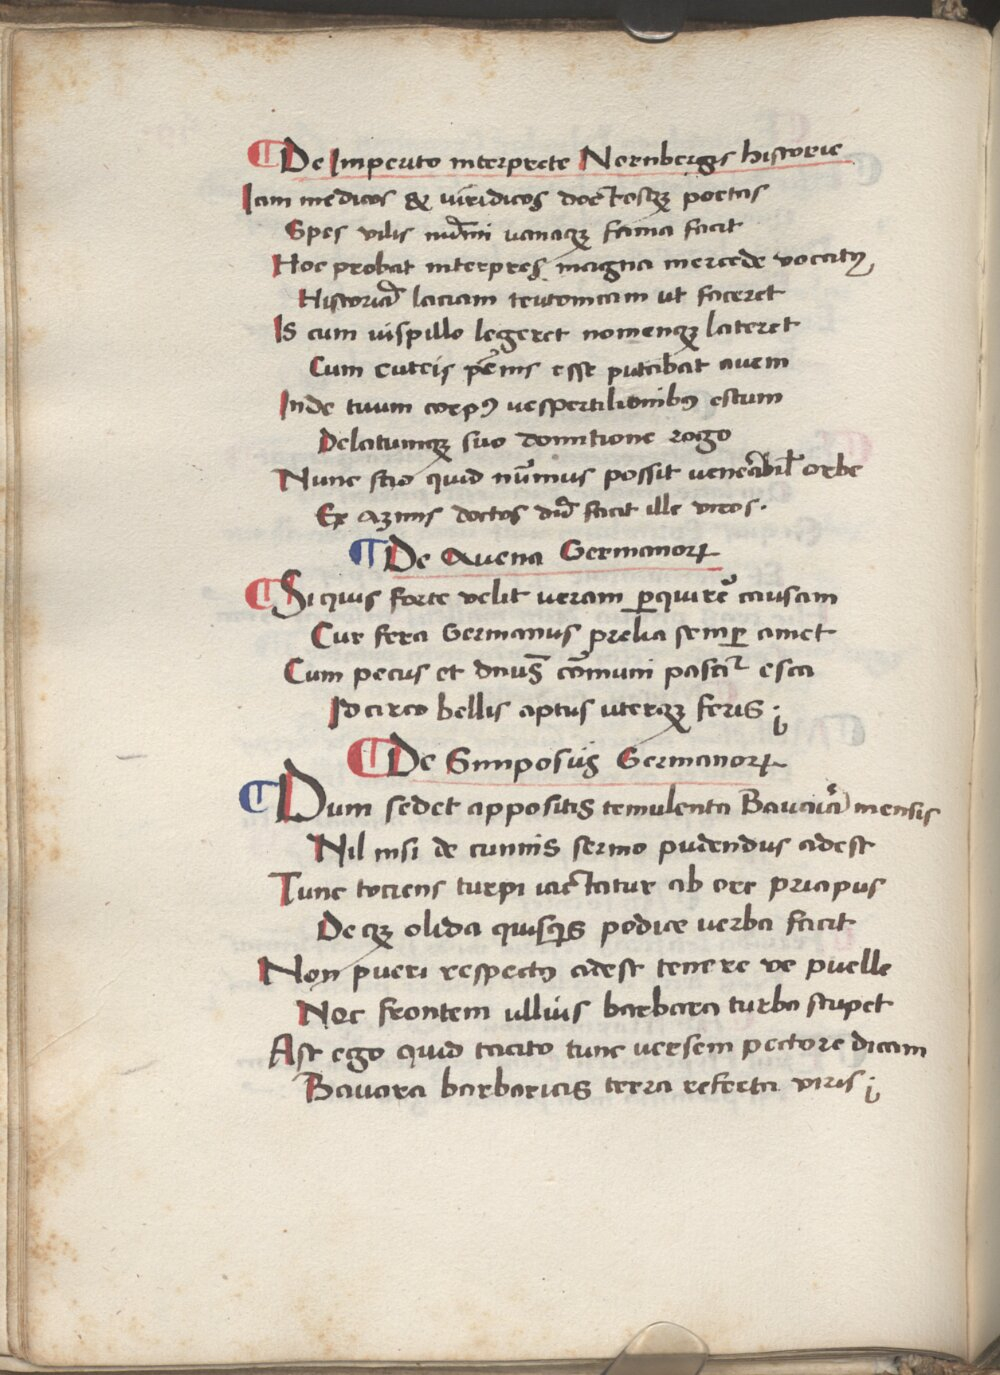 De Imperito interprete Nornbergẽ historie
Iam medicos & viridicos doctosqꝫ poetas
Spes vilis nũmi vanaqꝫ fama facit
Hoc probat interpres magna mercede vocatꝰ
Historiã laciam teutonicam ut faceret
Is cum vispillo legeret nomenqꝫ lateret
Cum cuteis pẽnis esse putabat auem
Inde tuum corpꝰ vespertilionibꝰ estum
Delatumqꝫ suo donitione rogo
Nunc scio quid nũmus possit venerabil̃ orbe
Ex azinis doctos dũ facit ille viros.
De Auena Germanoꝝ
Siquis forte velit veram ꝑquirẽ causam
Cur fera Germanus prelia semꝑ amet
Cum pecus et dñus cõmuni pascit᷑ esca
Idcirco bellis aptus uterqꝫ feris ;
De Simposijs Germanoꝝ
Dum sedet appositis temulenta Bauariã mensis
Nil nisi de cunnis sermo pudendus adest
Tunc tociens turpi iactatur ab ore priapus
Deqꝫ olida quisqꝫ podice verba facit
Non pueri respectꝰ adest tenere ve puelle
Nec frontem ullius barbara turba stupet
Ast ego quid tacito tunc versem pectore dicam
Bauara barbaricis terra referta viris ;